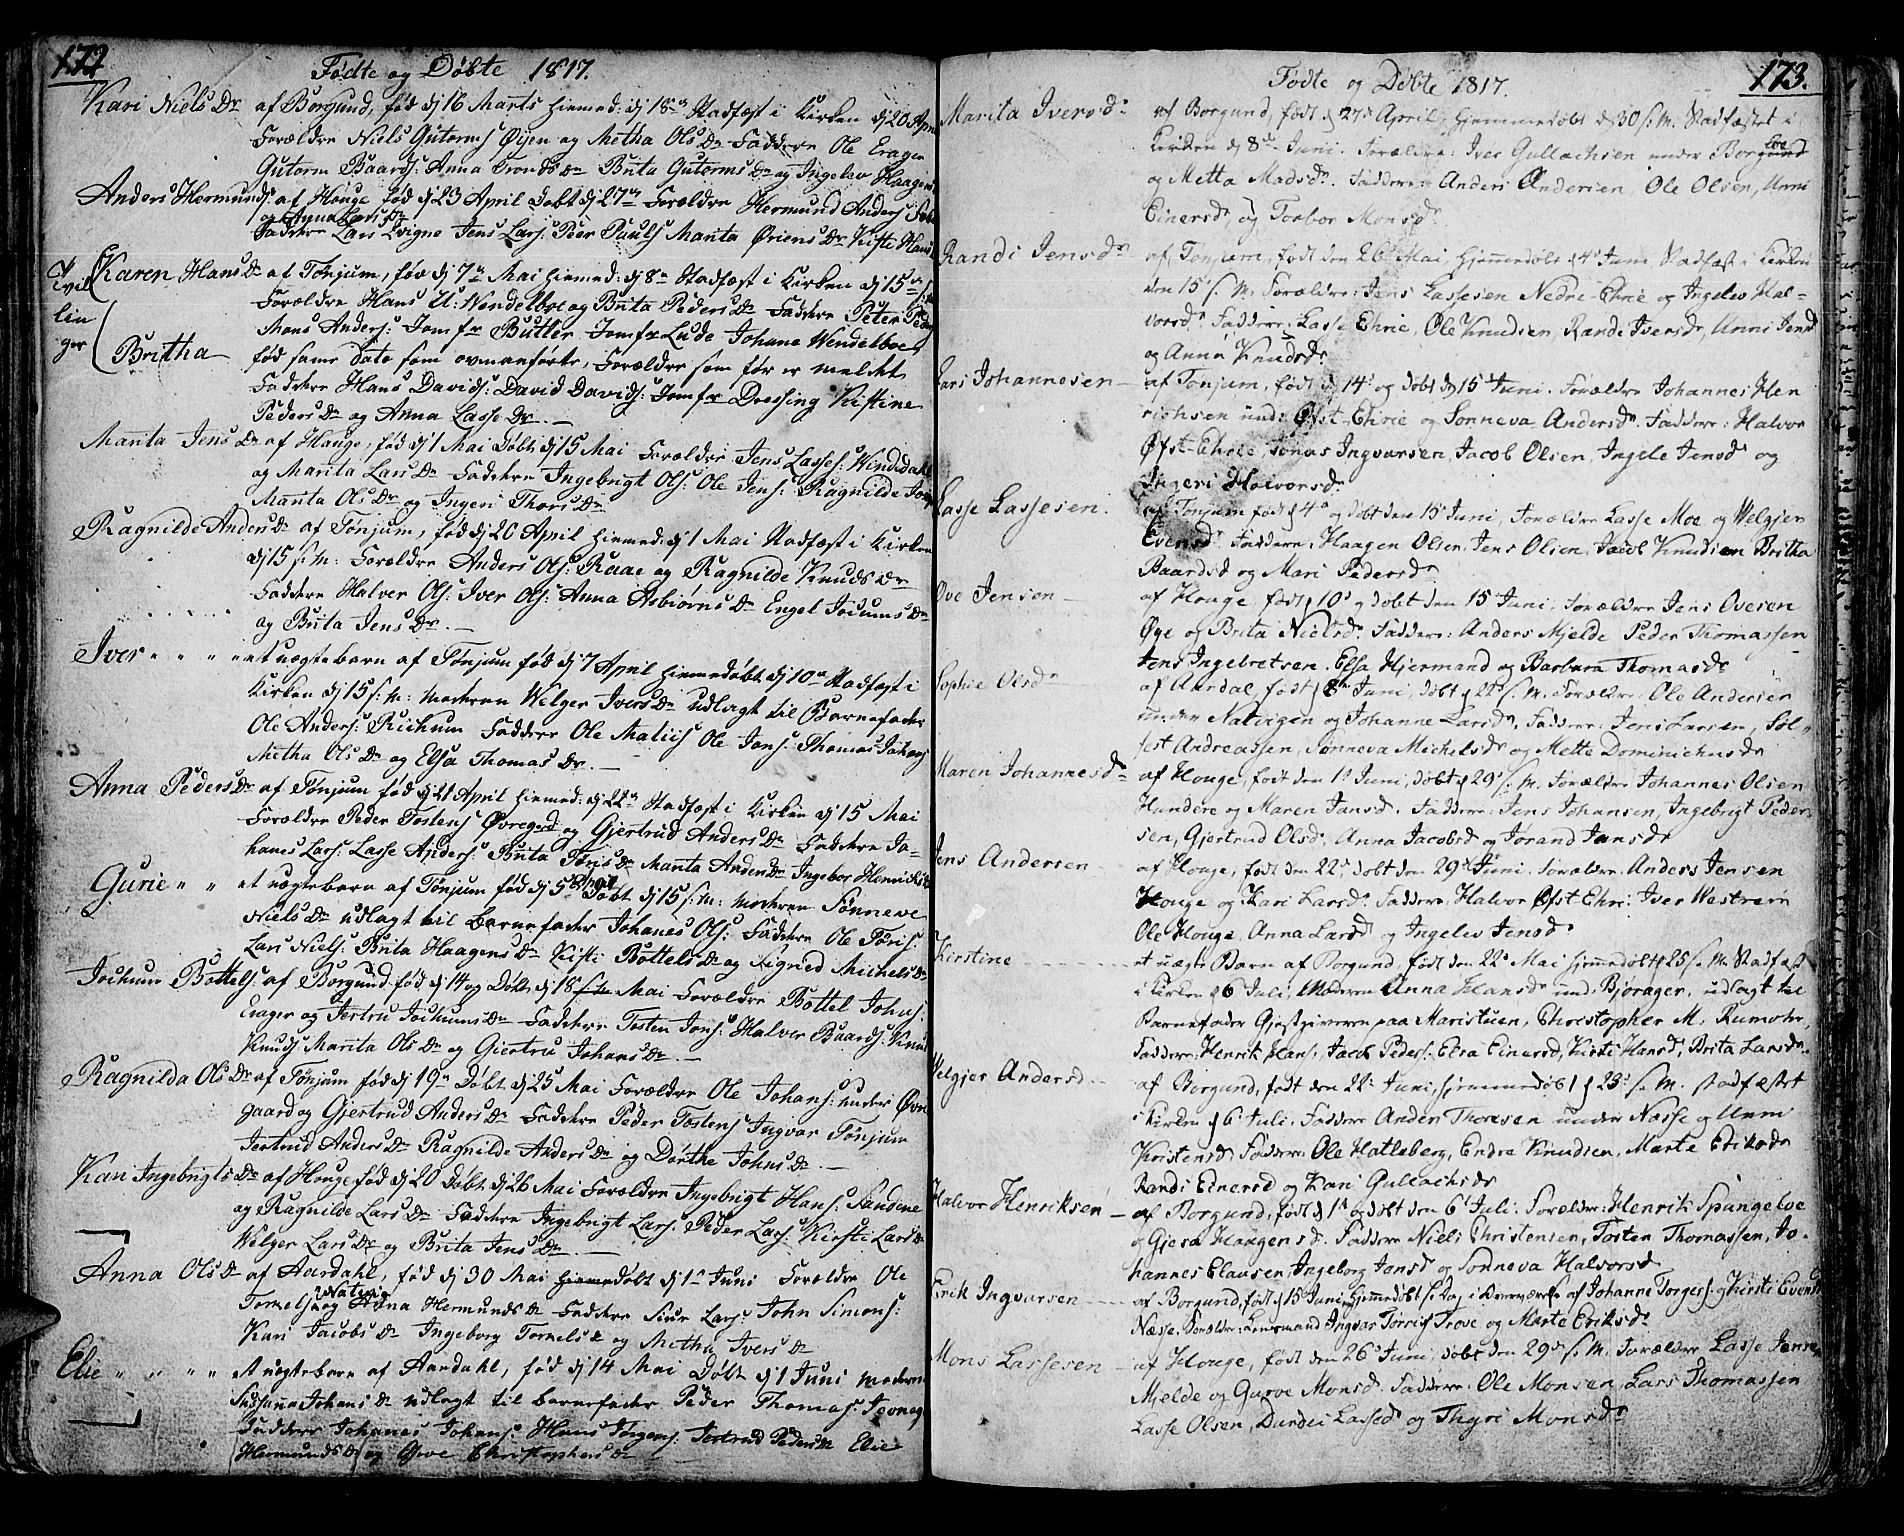 172
Födte og Döbte 1817.
Kari Niels Dr af Borgund, fød dj 16 Marts hiemmed: dj 18de Stadfæst i Kirken dj 20 Apr
Forældre Niels Gutorms Øijen og Metha Ols Dr Faddere Ole Erager
Gutorm Baards: Anna Tronds Dr Brita Gutorms Dr og Ingelev Haagens
Anders Hermunds af Houge fød dj 23 April Døbt dj 27de Forældre Hermund Anders
og Anna Lars Dr
Faddere Lars Qvigne Jens Lars: Peer Pauls Marita Øriens Dr Kisti Hans
Tvil
lin
ger
Karen Hans Dr af Tønjum, fød dj 7de Mai hiemmed: dj 8de Stadfæst i Kirken dj 15de
Forældre Hans U: Wendelboe og Brita Peders Dr Faddere Peter
Mons Anders: Jomfr Butler Jomfr Lude Johane Wendelboe
Britha
fød same dato som ovmanførte, Forældre som før er meldet
Faddere Hans Davids: David Davids: Jomfr Dressing Kistine
Peders Dr og Anna Lasse Dr.
Marita Jens Dr af Houge, fød dj 1 Mai Døbt dj 15 Mai Forældre Jens Lasses: Windedahl
og Marita Lars Dr Faddere Ingebrigt Ols: Ole Jens: Ragnilde
Marita Ols Dr og Ingeri Thors Dr
Ragnilde Anders Dr af Tønjum, fød dj 20 April hiemmed: dj 1 Mai Stadfæst i Kirken
dj 15 s: M: Forældre Anders Ols: Raae og Ragnilde Knuds Dr
Faddere Halver Ols: Iver Ols: Anna Asbiørns Dr Engel Jochums Dr
og Brita Jens Dr.
Iver " " " et uægtebarn af Tønjum fød dj 7 April hiemedøbt dj 10de Stadfæst i
Kirken dj 15 s: M: Moderen Welger Ivers Dr udlagt til Barnefader
Ole Anders: Rickum Faddere Ole Matiis Ole Jens: Thomas
Metha Ols Dr og Elsa Thomas Dr.
Anna Peders Dr af Tønjum fød dj 21 April hiemmed: dj 22de Stadfæst i Kirken dj 15 Mai
Forældre Peder Tostens Øvregard og Gjertrud Anders Dr Faddere Jo-
hanes Lars: Lasse Anders: Brita Jøris Dr Marita Anders Dr Ingebor Henriks Dr
Gurie " " et uægtebarn af Tønjum fød dj 5 Døbt dj 15 s: M: Moderen Sønneve
Niels Dr udlagt til Barnefader Johanes Ols: Faddere Ole Jøris:
Lars Niels: Brita Haagens Dr Kisti Bottels Dr og Signed Michels Dr
Jochum Bottels: af Borgund fød dj 14 og Døbt dj 18 Mai Forældre Bottel Johns:
Erager og Jertru Jochums Dr Faddere Tosten Jons: Halver Baards: Knud
Knuds Marita Ols Dr og Giertru Johans Dr.
Ragnilda Ols Dr af Tønjum fød dj 19de Døbt dj 25 Mai Forældre Ole Johans: under Øvre
gaard og Gjertrud Anders Dr Faddere Peder Tostens Ingvar Tønjum
Jertrud Anders Dr Ragnilde Anders Dr og Dorthe Johns Dr.
Kari Ingebrigts Dr af Houge fød dj 20 Døbt dj 26 Mai Forældre Ingebrigt Hans: Sandene
og Ragnilde Lars Dr Faddere Ingebrigt Lars: Peder Lars: Kirsti Lars Dr
Welger Lars Dr og Brita Jens Dr.
Anna Ols Dr af Aardahl, fød dj 30 Mai hiemedøbt dj 1de Juni Forældre Ole
Natvig
Tornels og Anna Hermunds Dr Faddere Siur Lars: John Simons:
Kari Jacobs Dr Ingeborg Tornels Dr og Metha Ivers Dr
Elie " " " et uægtebarn af Aardahl, fød dj 14 Mai Døbt dj 1 Juni Moderen
Susanna Johans Dr udlagt til barnefader Peder Thomas:
Faddere Johanes Johans: Hans Jørgens: Jertrud Peders Dr Elie
Hermunds Dr og Christophers Dr
173.
Födte og Döbte 1817.
Marita Iversd. af Borgund, født d 27de April, hjemmedøbt d 30 s. M. Stadfæstet i
Kirken d 8de Juni. Forældre: Iver Gullachsen under Borgund
og Metta Madsdr. Faddere: Anders Andersen, Ole Olsen, Unni
Einersdr og Torbor Monsdr
Randi Jensdr af Tonjum, født den 26de Mai, hjemmedøbt d 4de Juni Stadfæst i Kirken
den 15 s. M. Forældre: Jens Lassesen Nedre-Ehrie og Ingelev Hal-
vorsdr. Faddere: Lasse Ehrie, Ole Knudsen, Rande Iversdr, Unni Jensd
og Anna Knudsdr
Lars Johannesen af Tonjum, født d 14de og døbt d 15de Juni. Forældre Johannes Hen
richsen und: Øst-Ehrie og Sonneva Andersdr. Faddere: Halvor
Øfst-Ehrie, Jonas Ingvarsen, Jacob Olsen, Ingele Jensdr og
Ingeri Halvorsdr.
Lasse Lassesen. af Tonjum født d 4de og døbt den 15de Juni, Forældre Lasse Moe og Welgjer
Evensdr. Faddere: Haagen Olsen, Jens Olsen, Jacob Knudsen Britha
Baardsd og Mari Pedersdr
Ove Jensen af Houge, født d 10de og døbt den 15de Juni, Forældre Jens Ovesen
Øye og Brita Nielsdr. Faddere: Anders Mjelde Peder Thomassen
Jens Ingebretsen. Elsa Hjermand og Barbara Thomasdr
Sophie Olsdr af Aardal, født d 8de Juni, døbt d 22de s. M. Forældre: Ole Andersen
under Natvigen og Johanne Larsdr, Faddere: Jens Larsen, Sol-
fest Andreassen, Sonneva Michelsdr og Mette Dominichusdr
Maren Johannesdr af Houge, født den 1de Juni, døbt d 29de s. M. Forældre Johannes Olsen
Hundere og Maren Jansd. Faddere: Jens Johansen, Ingebrigt Peder-
sen, Gjertrud Olsd, Anna Jacobsd og Jorand Jansdr
Jens Andersen af Houge, født den 22de døbt den 29de Juni. Forældre: Anders Jensen
Houge og Kari Larsdr. Faddere: Halvor Øfst Ehri: Iver Westrem
Ole Houge, Anna Larsd og Ingelev Jensdr
Kirstine et uægte Barn af Borgund, født den 22de Mai hjemmedøbt 25 s. M. Stadfæst
i Kirken d 6 Juli, Moderen Anna Hansdr und: Bjorager. udlagt til
Barnefader Gjestgiveren paa Maristuen, Christopher M. Rumohr,
Faddere: Henrik Hans, Jacob Peders: Elsa Einersd, Kirsti Hansd, Brita Larsdr.
Welgjer Andersd af Borgund, født den 22de Juni, hjemmedøbt d 23de s. M. stadfæstet
i Kirken d 6te Juli. Faddere Anders Thoresen under Næsse og Unni
Kristensd, Faddere: Ole Hatleberg, Endre Knudsen, Marte Eriksdr
Randi Einersd og Kari Gullachsdr
Halvor Henriksen af Borgund, født d 1de og døbt den 6te Juli. Forældre: Henrik Spangeloe
og Gjesa Haagensd. Faddere Niels Christensen, Tosten Thomassen, Jo-
hannes Clausen, Ingeborg Jensd og Sonneva Halvorsdr
Erik Ingvarsen af Borgund, født d 15de Juni, hjemmedøbt s. Dag i Overværelse af Johanne Torgers: og Kirsti Evensd
Næsse. Forældre: Lensmand Ingvar Torris Trove og Marte Eriksdr
Mons Lassesen af Houge, født den 26de Juni, døbt den 29de s. M. Forældre Lasse Jensen
Mjelde og Gurve Monsdr. Faddere: Ole Monsen, Lars Thomassen
Lasse Olsen, Durdei Lassedr og Thyri Monsdr